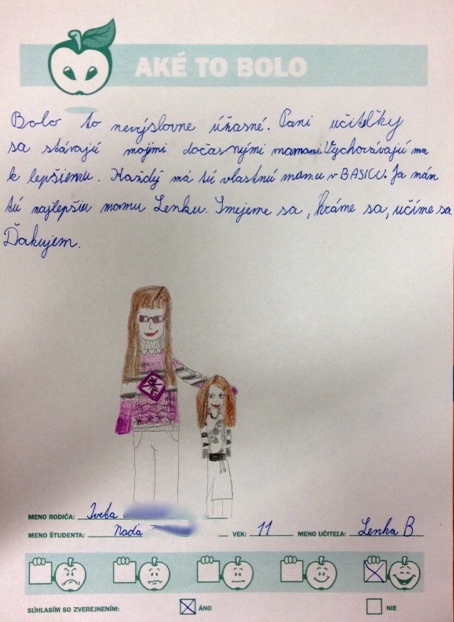 AKÉ TO BOLO
Bolo to nevýslovne úžasné. Pani učiteľky
sa stávajú mojimi dočasnými mamami. Vychovávajú ma
k lepšiemu. Každý má tú vlastnú mamu v BASICU. Ja mám
tú najlepšiu mamu Lenku. Smejeme sa, hráme sa, učíme sa
Ďakujem.
MENO RODIČA: Iveta
MENO ŠTUDENTA: Naďa VEK: 11 MENO UČITEĽA: Lenka B
SÚHLASÍM SO ZVEREJNENÍM: ÁNO NIE